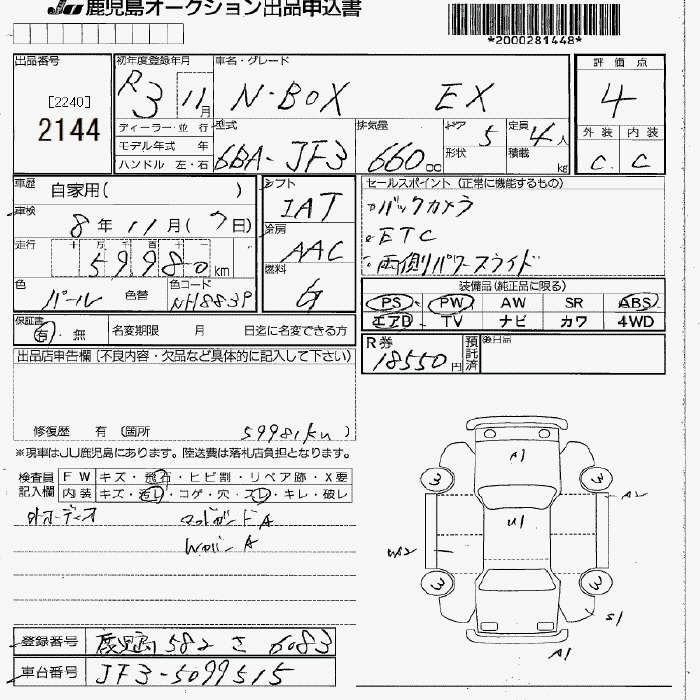 JU 鹿児島オークション出品申込書
*2000281448*
出品番号
[2240]
2144
初年度登録年月
R3 11月
車名・グレード
N-BOX EX
評価点
4
外装 内装
C C
ディーラー・並行
モデル年式 年
ハンドル 左・右
型式
6BA-JF3
排気量
660cc
ドア 5
形状
定員 4人
積載 kg
車歴
自家用( )
車検
8年11月(7日)
走行
十万千百十
59980km
色
パール 色替
色コード
NH883P
シフト
IAT
冷房
AAC
燃料
セールスポイント (正常に機能するもの)
バックカメラ
ETC
両側パワースライド
装備品(純正品に限る)
PS PW AW SR ABS
エアB TV ナビ カワ 4WD
保証書
有・無
名変期限 月 日迄に名変できる方
R券
18550円
預託済
後日品
出品店申告欄(不良内容・欠品など具体的に記入して下さい)
修復歴 有 (箇所 59981km )
※現車はJU鹿児島にあります。陸送費は落札店負担となります。
検査員記入欄
FW キズ・飛石・ヒビ割・リペア跡・X要
内装 キズ・汚レ・コゲ・穴・スレ・キレ・破レ
外オーディオ
マッドガードA
WバーA
A1
3 3
A2
U1
UA2
3 3
S1
A1
登録番号 鹿児島 582 さ 6083
車台番号 JF3-5099515